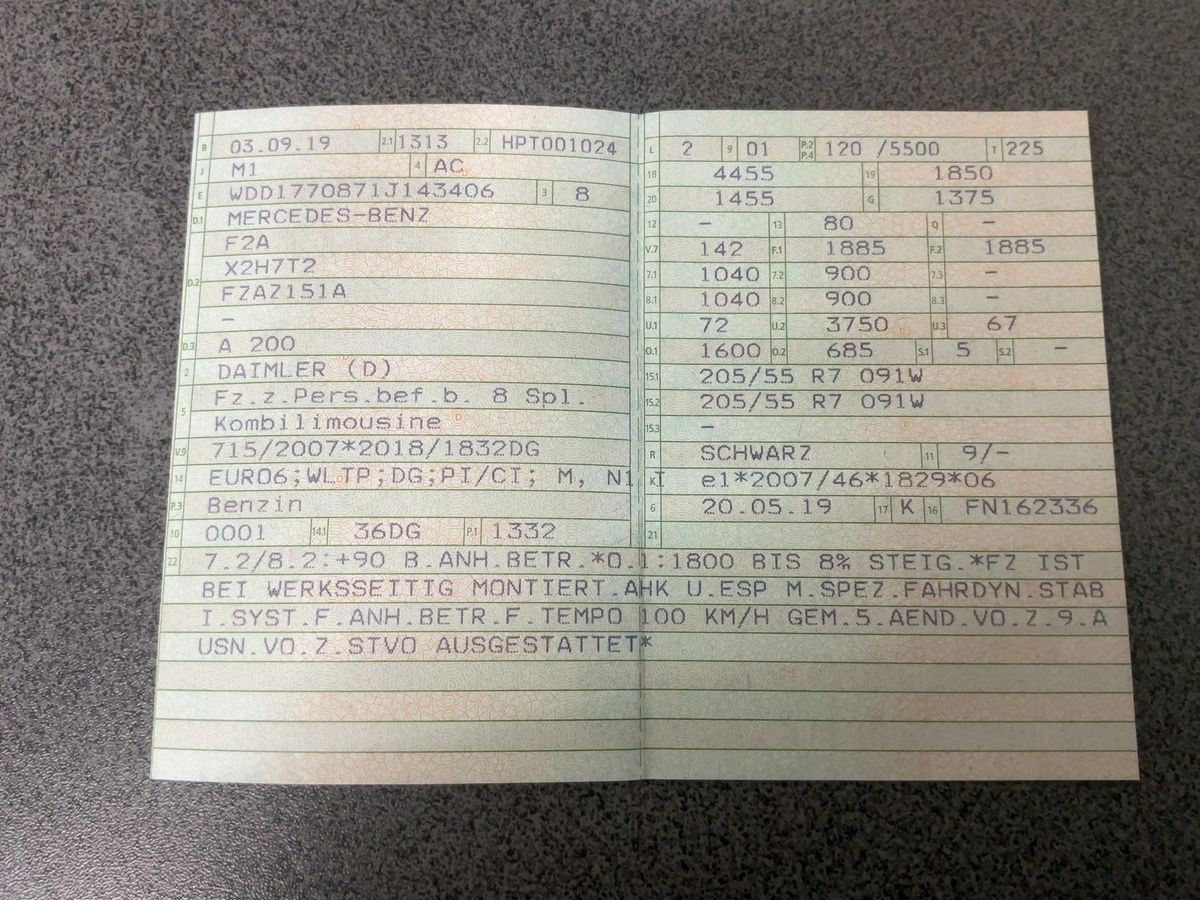 B 03.09.19 2.1 1313 2.2 HPT001024
J M1 4 AC
E WDD1770871J143406 3 8
D.1 MERCEDES-BENZ
F2A
D.2 X2H7T2
FZAZ151A
-
D.3 A 200
2 DAIMLER (D)
5 Fz.z.Pers.bef.b. 8 Spl.
Kombilimousine
V.9 715/2007*2018/1832DG
14 EURO6;WLTP;DG;PI/CI; M, N1 I
P.3 Benzin
10 0001 14.1 36DG P.1 1332
L 2 9 01 P.2 P.4 120 /5500 T 225
18 4455 19 1850
20 1455 G 1375
12 - 13 80 Q -
V.7 142 F.1 1885 F.2 1885
7.1 1040 7.2 900 7.3 -
8.1 1040 8.2 900 8.3 -
U.1 72 U.2 3750 U.3 67
O.1 1600 O.2 685 S.1 5 S.2 -
15.1 205/55 R7 091W
15.2 205/55 R7 091W
15.3 -
R SCHWARZ 11 9/-
K e1*2007/46*1829*06
6 20.05.19 17 K 16 FN162336
21
22 7.2/8.2:+90 B.ANH.BETR.*O.1:1800 BIS 8% STEIG.*FZ IST
BEI WERKSSEITIG MONTIERT.AHK U.ESP M.SPEZ.FAHRDYN.STAB
I.SYST.F.ANH.BETR.F.TEMPO 100 KM/H GEM.5.AEND.VO.Z.9.A
USN.VO.Z.STVO AUSGESTATTET*